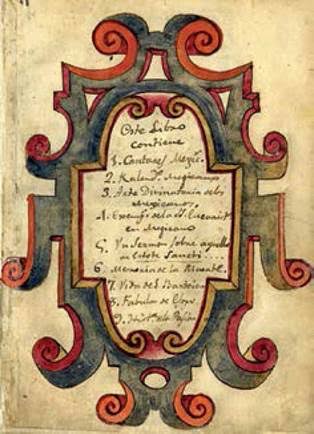 Este Libro
contiene
1. Cantares Mexic.
2. Kalend.º Mexicano
3. Arte Divinatoria de los
Mexicanos.
4. Exemp.s de la S. Eucarist.
en Mexicano
5. Un Sermon sobre aquello
de Estote Sancti....
6. Memoria de la Muerte.
7. Vida de S. Bartolom
8. Fabulas de Esopo
9. Hist.ª de la Pasion